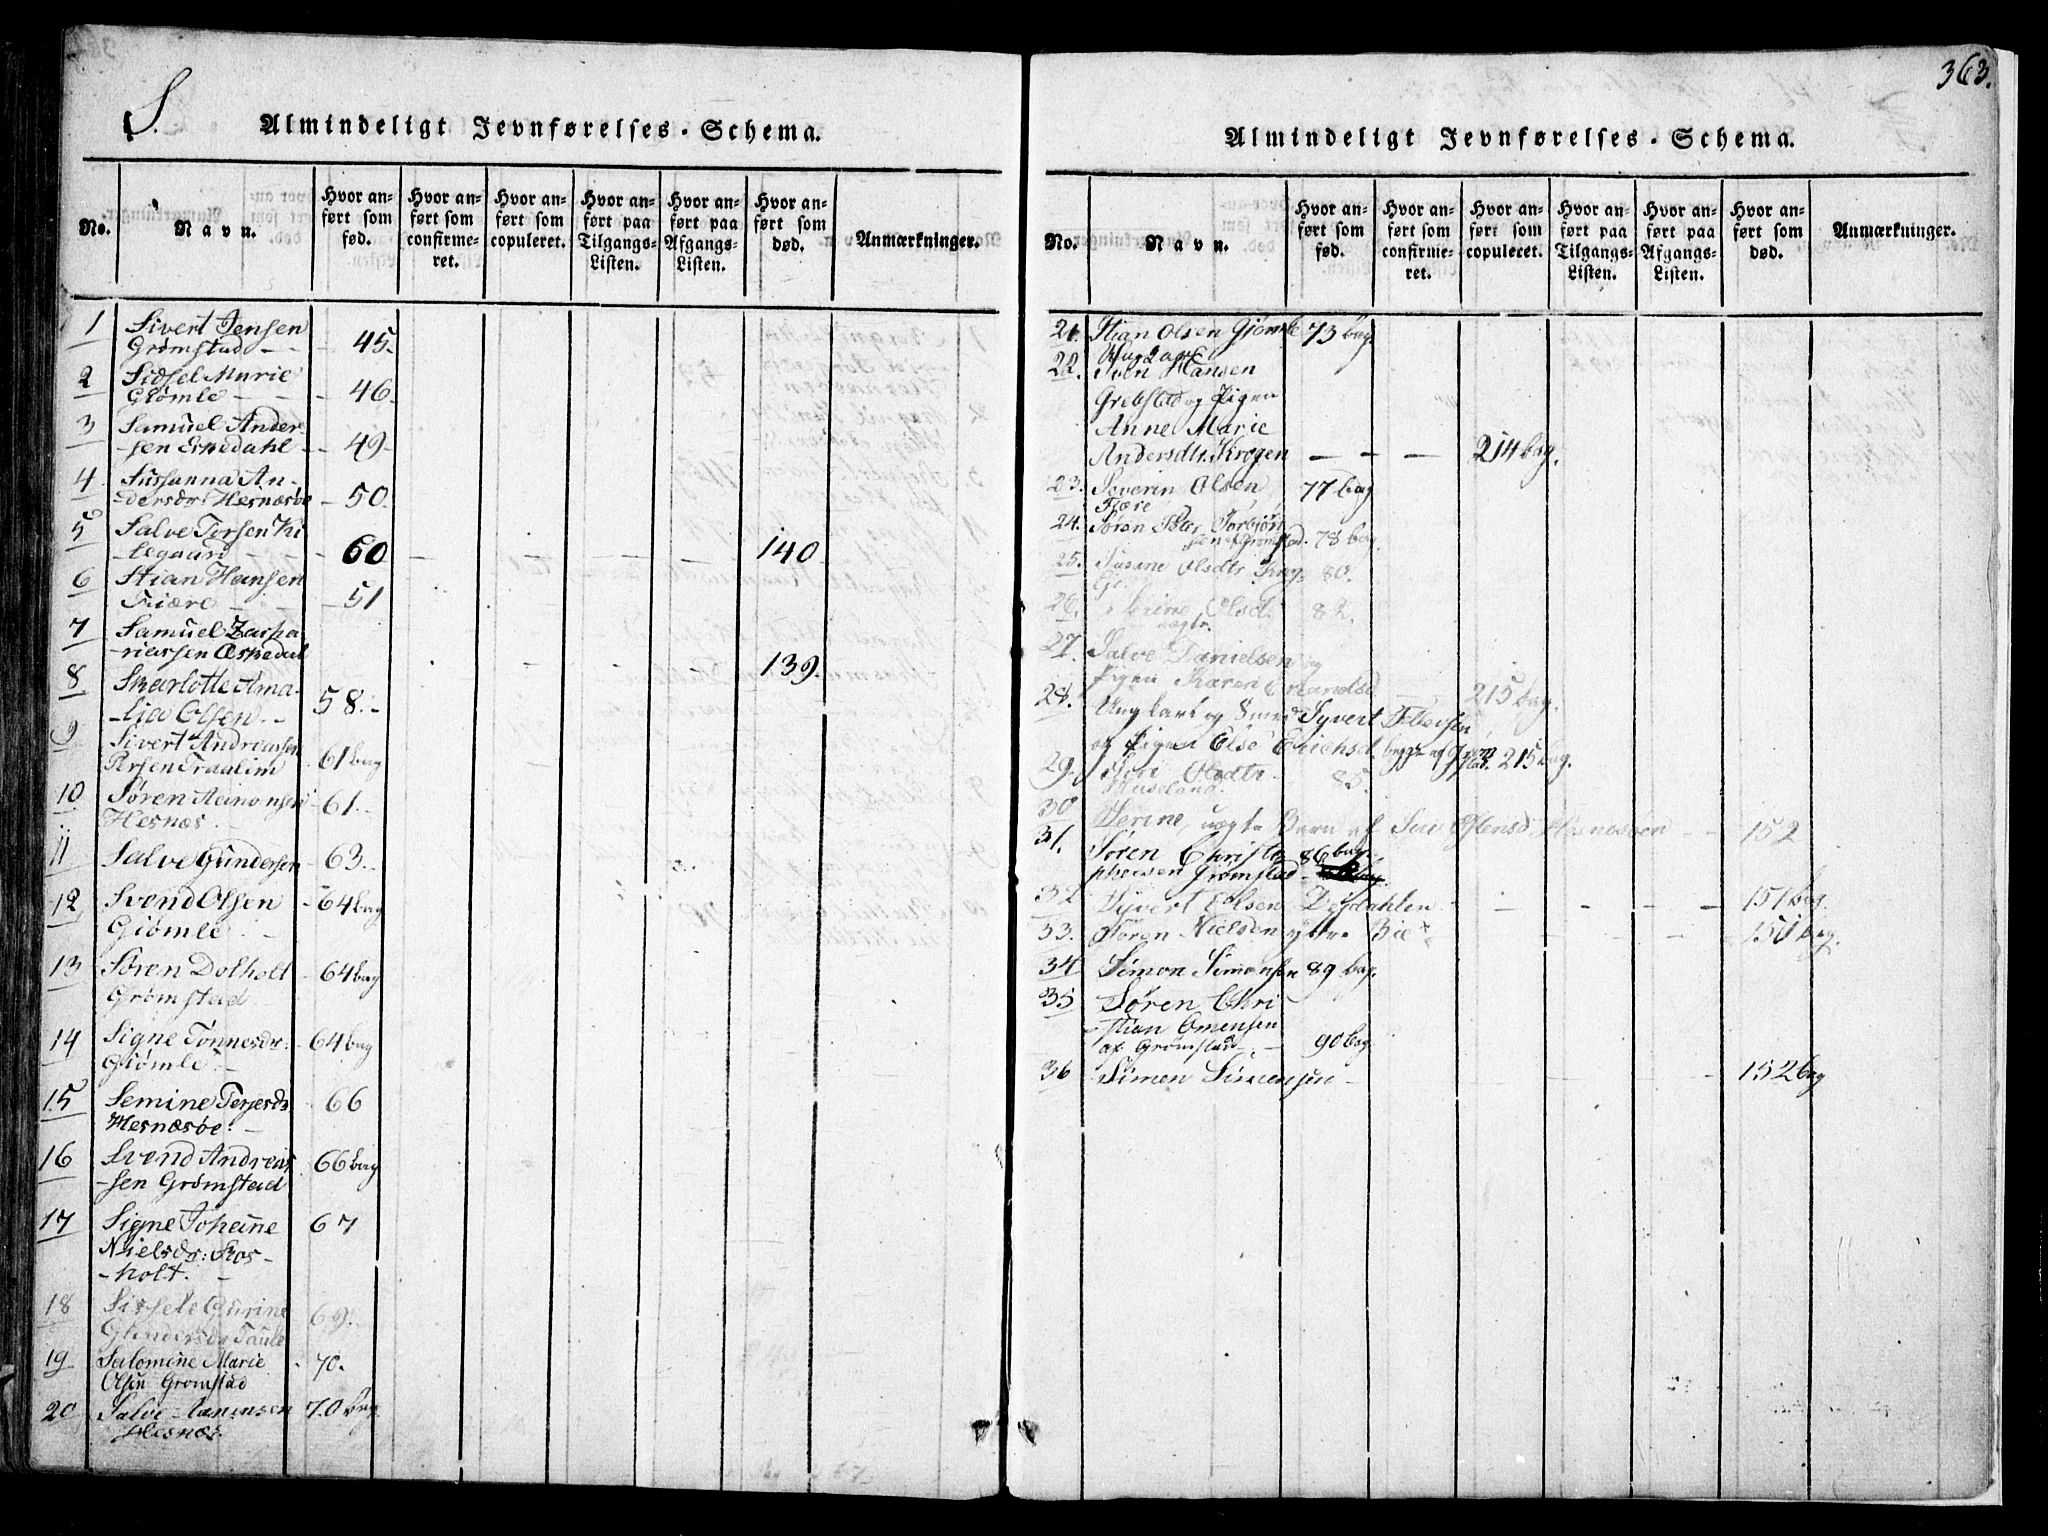 S.
Almindeligt Jevnførelses-Schema.
No.
Navn.
Hvor anført som fød.
Hvor anført som confirmeret.
Hvor anført som copuleret.
Hvor anført paa Tilgangs-Listen.
Hvor anført paa Afgangs-Listen.
Hvor anført som død.
Anmærkninger.
1 Sivert Jensen
Grømstad - - 45.
2 Sidsel Marie
Giømle - - - 46.
3 Samuel Ander-
-sen Espedahl - - 49.
4 Sussanna An-
-dersdr: Hesnæsøe - 50.
5 Salve Tersen Ki-
-legaard - - - 60 - - - - 140
6 Stian Hansen
Fiære - - - 51
7 Samuel Zacha-
-riassen Espedal - - - - 139.
8 Skarlotte Ama-
-lia Olsen. - - 58. -
9 Sivert Andreassen
Persen Traalim 61 bag
10 Søren Aanonsen - 61. -
Hesnæs.
11 Salve Gundersen - 63. -
12 Svend Olsen - 64 bag
Giømle
13 Søren Dolholt - 64 bag
Grømstad
14 Signe Tønnesdr: - 64 bag
Giømle -
15 Semine Terjesdr 66
Hesnæsøe: -
16 Svend Andreas- 66 bag
-sen Grømstad
17 Signe Johanne 67
Nielsdr: Ros-
-holt. -
18 Sissele Gurine 69.
Gundersdr
19 Salomine Marie - 70.
Olsen Grømstad
20 Salve Hansen 70 bag
Hesnæs.
363.
Almindeligt Jevnførelses-Schema.
No.
Navn.
Hvor anført som fød.
Hvor anført som confirmeret.
Hvor anført som copuleret.
Hvor anført paa Tilgangs-Listen.
Hvor anført paa Afgangs-Listen.
Hvor anført som død.
Anmærkninger.
21. Stian Olsen Giømle 73 bag.
22. Ungkarl
Sven Hansen
Grebstad og Pigen
Anne Marie
Andersdtr. Krogen - - - 214 bag.
23. Severin Olsen 77 bag
Fiære
24. Søren Torbjørn
sen Grømstad. 78 bag.
25. Susane Olsdtr 80.
26. Serine Olsd. 82.
uægte.
27. Salve Danielsen og
Pigen Karen - 215 bag.
28. Ungkarl og Syvert
og Pigen Else Erichsd. begge af Grøm
stad. 215 bag.
29. Siri Olsdtr. 85.
30 Serine, uægte Barn af Siri Olsensd Hesnæsøen - - 152
31. Søren Christo 86 bag.
phersen Grømstad -
32 Syvert Olsen Dejdahlen - - - - - 151 bag.
33. Søren Nielsen ytre Bie - - - 151 bag.
34 Simon Simonsen 89 bag.
35 Søren Chri
stian Omensen
af Grømstad - - 90 bag.
36 Simen Simensen - - - - 152 bag